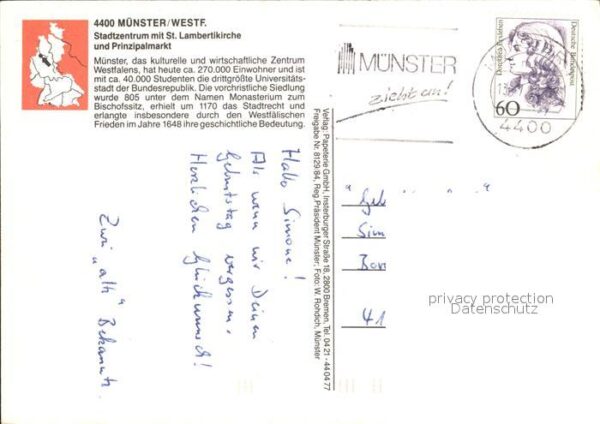 4400 MÜNSTER/WESTF.
Stadtzentrum mit St. Lambertikirche
und Prinzipalmarkt
Münster, das kulturelle und wirtschaftliche Zentrum
Westfalens, hat heute ca. 270.000 Einwohner und ist
mit ca. 40.000 Studenten die drittgrößte Universitäts-
stadt der Bundesrepublik. Die vorchristliche Siedlung
wurde 805 unter dem Namen Monasterium zum
Bischofssitz, erhielt um 1170 das Stadtrecht und
erlangte insbesondere durch den Westfälischen
Frieden im Jahre 1648 ihre geschichtliche Bedeutung.
MÜNSTER
zieht an!
Dorothea Erxleben
Deutsche Bundespost
60
4400
Verlag: Papeterie GmbH, Insterburger Straße 18, 2800 Bremen, Tel. 04 21 - 44 04 77
Freigabe Nr. 8129/84, Reg. Präsident Münster; Foto: W. Rohdich, Münster
Hallo Simone!
Als wenn wir Deinen
Geburtstag vergessen.
Herzlichen Glückwunsch!
Zwei "alte" Bekannte
Sim
41
privacy protection
Datenschutz